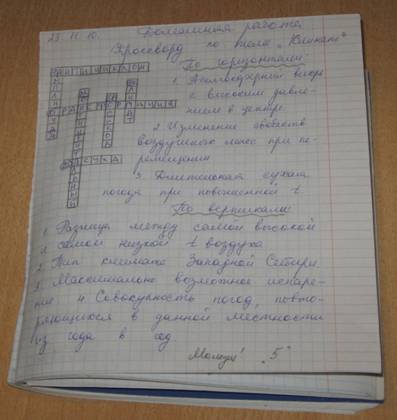 23.11.10. Домашняя работа.
Кроссворд по теме „Климат"
АНТИЦИКЛОН
ТРАНСФОРМАЦИЯ
ЗАСУХА
По горизонтали
1. Атмосферный вихрь
с высоким давле-
нием в центре
2. Изменение свойств
воздушных масс при пе-
ремещении
3. Длительная сухая
погода при повышенной t.
По вертикали
1. Разница между самой высокой
и самой низкой t воздуха
2. Тип климата Западной Сибири
3. Максимально возможное испаре-
ние 4. Совокупность погод, повто-
ряющихся в данной местности
из года в год.
Молодец! „5"